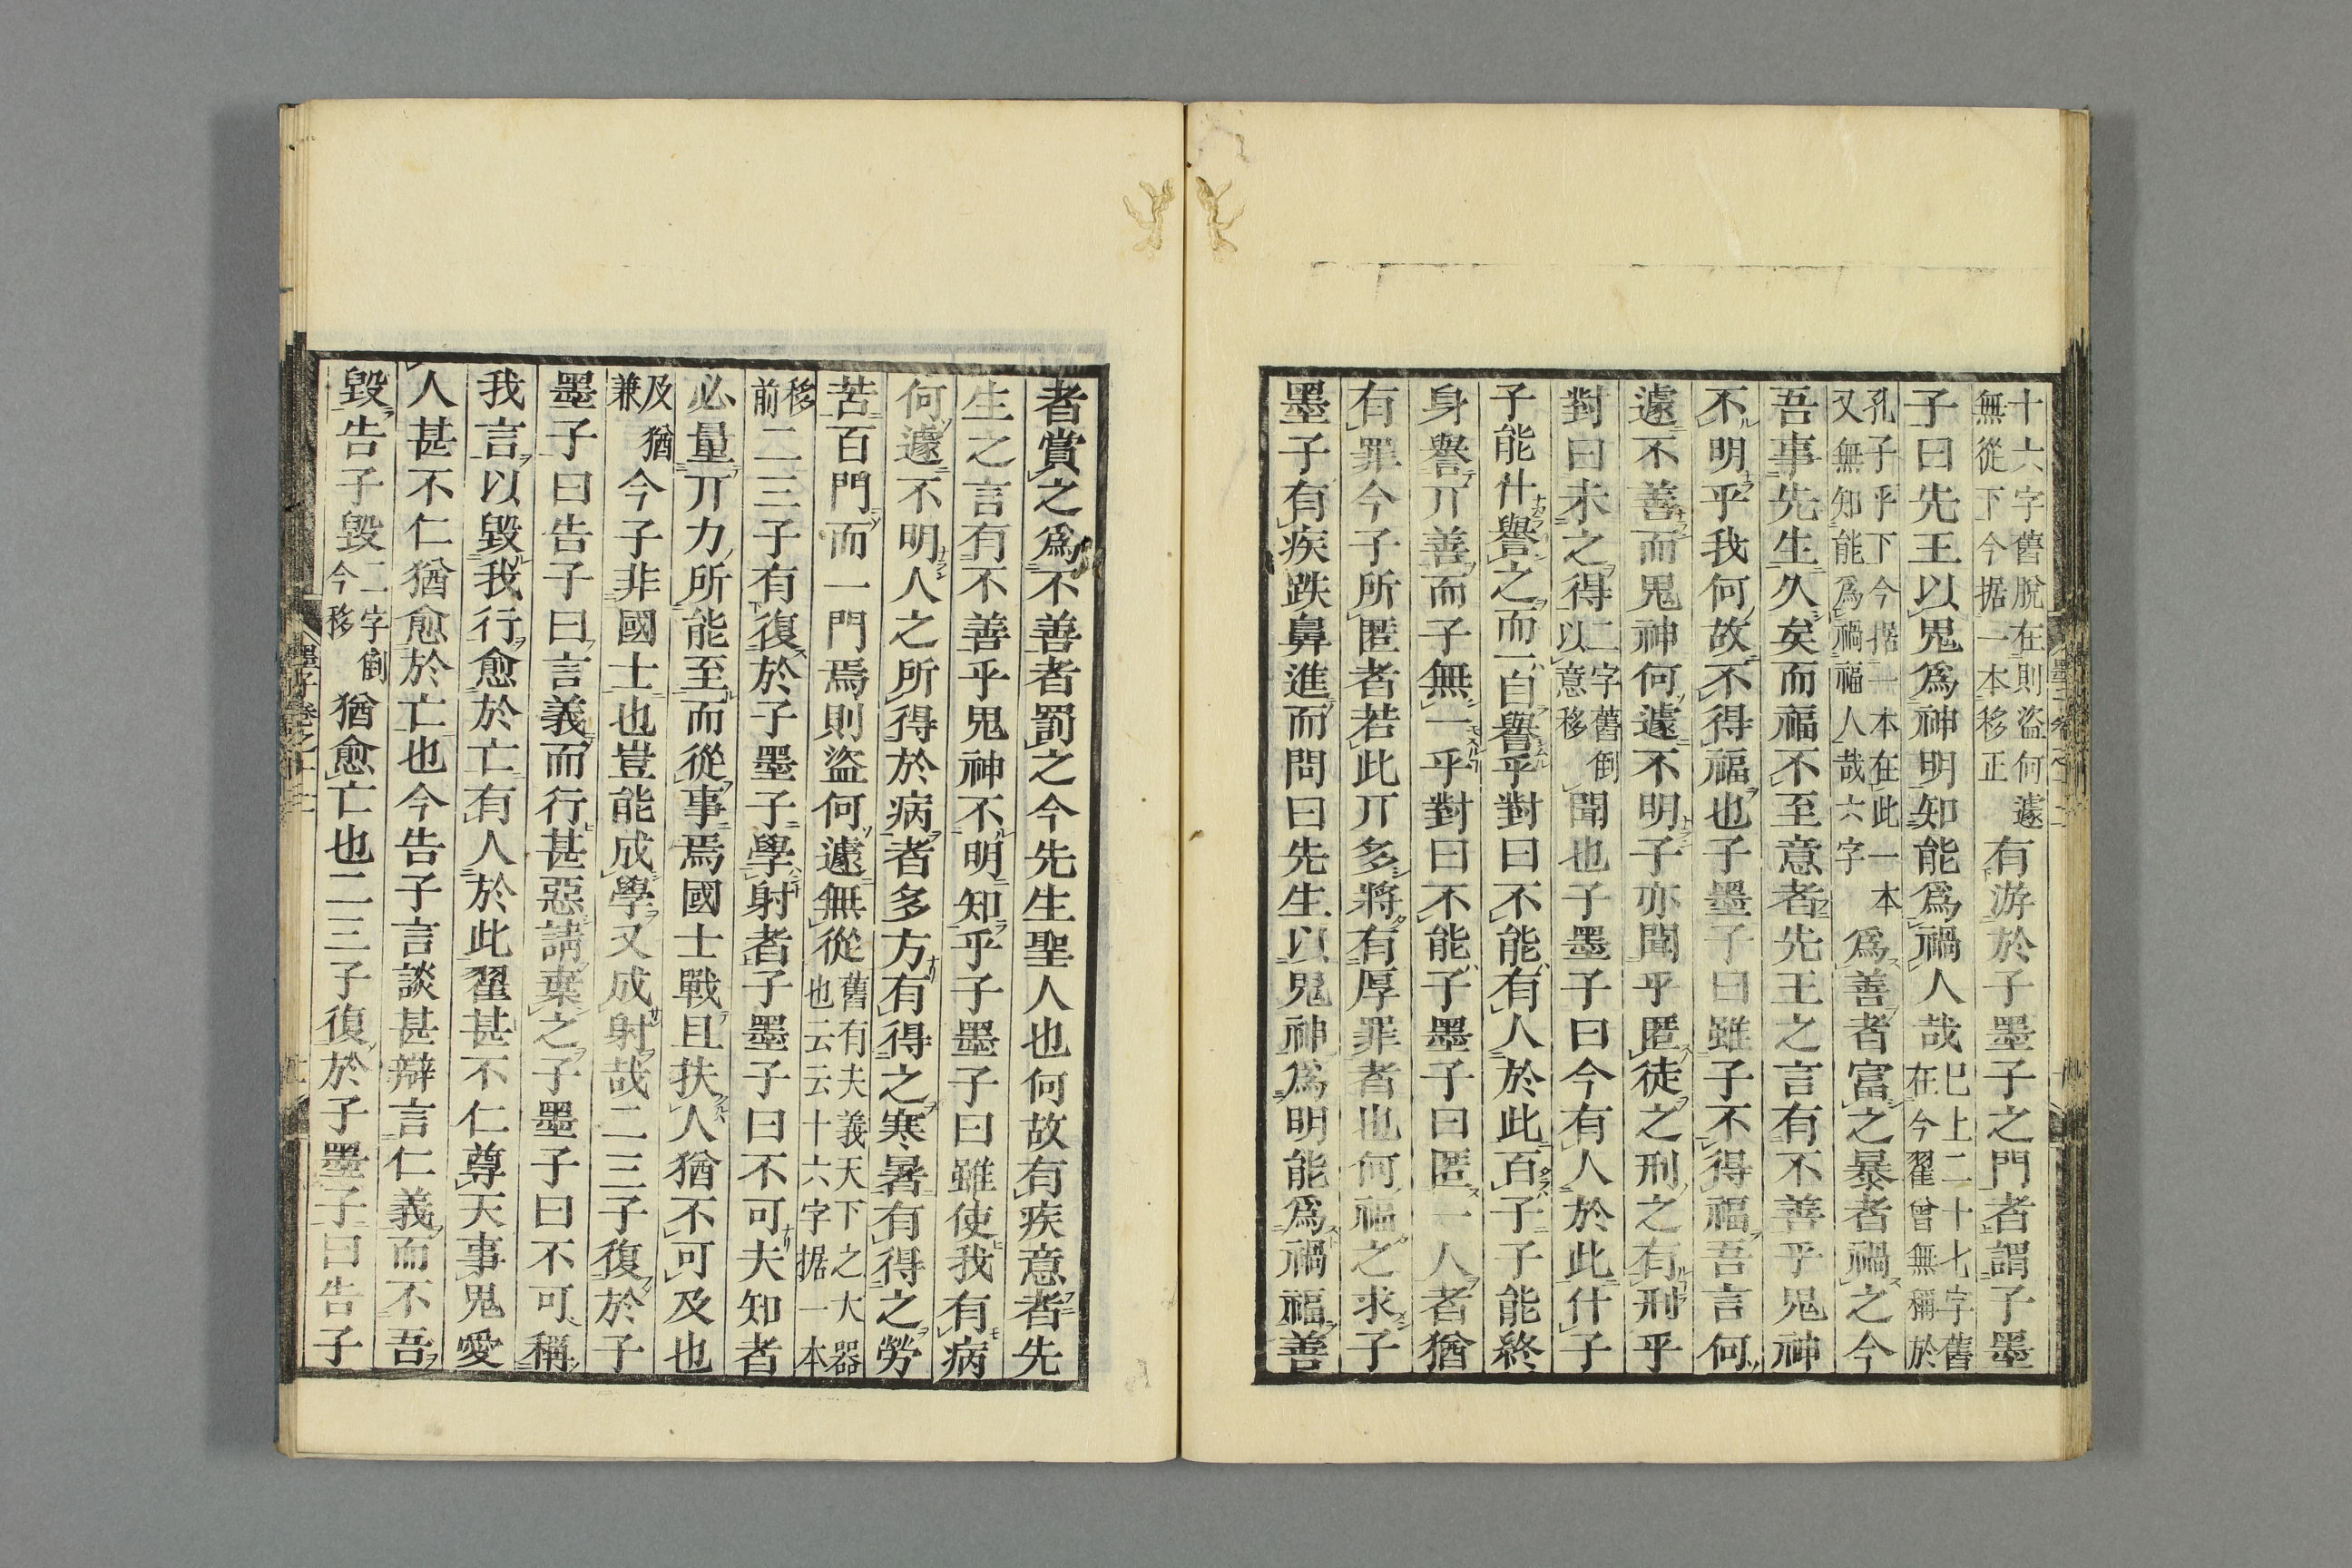 十六字舊脫在則盜何遽無從下今据一本移正有游於子墨子之門者謂子墨
子曰先王以鬼爲神明知能爲禍人哉巳上二十七字舊在今翟曾無稱於
孔子乎下今据一本在此一本又無知能爲禍福人哉六字爲善者富之暴者禍之今
吾事先生久矣而福不至意者先王之言有不善乎鬼神
不明乎我何故不得福也子墨子曰雖子不得福吾言何
遽不善而鬼神何遽不明子亦聞乎匿徒之刑之有刑乎
對曰未之得二字舊倒以意移聞也子墨子曰今有人於此什子
子能什譽之而一自譽乎對曰不能有人於此百子子能終
身譽丌善而子無一乎對曰不能子墨子曰匿一人者猶
有罪今子所匿者若此丌多將有厚罪者也何福之求子
墨子有疾跌鼻進而問曰先生以鬼神爲明能爲禍福善
者賞之爲不善者罰之今先生聖人也何故有疾意者先
生之言有不善乎鬼神不明知乎子墨子曰雖使我有病
何遽不明人之所得於病者多方有得之寒暑有得之勞
苦百門而一門焉則盜何遽無從舊有夫義天下之大器也云云十六字据一本
移前二三子有復於子墨子學射者子墨子曰不可夫知者
必量丌力所能至而從事焉國士戰且扶人猶不可及也
及猶兼今子非國士也豈能成學又成射哉二三子復於子
墨子曰告子曰言義而行甚惡請棄之子墨子曰不可稱
我言以毀我行愈於亡有人於此翟甚不仁尊天事鬼愛
人甚不仁猶愈於亡也今告子言談甚辯言仁義而不吾
毀告子毀二字倒今移猶愈亡也二三子復於子墨子曰告子
墨子卷之十二